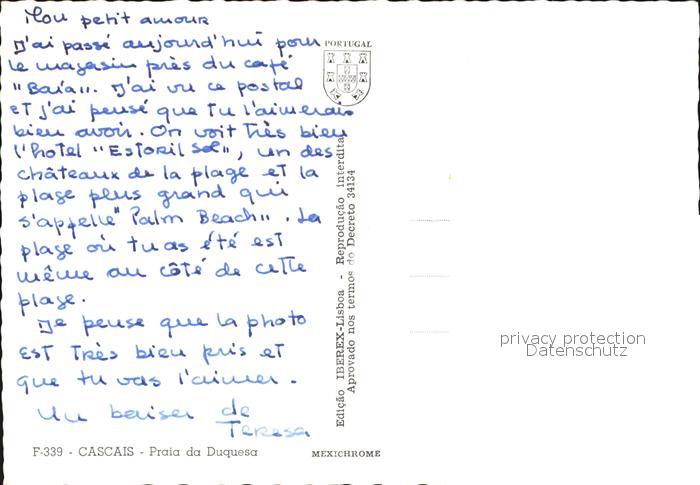 Mon petit amour
J'ai passé aujourd'hui pour
le magasin près du café
"Baía". J'ai vu ce postal
et j'ai pensé que tu l'aimerais
bien avoir. On voit très bien
l'hotel "Estoril Sol", un des
châteaux de la plage et la
plage plus grand qui
s'appelle "Palm Beach". La
plage où tu as été est
même au côté de cette
plage.
Je pense que la photo
est très bien pris et
que tu vas l'aimer.
Un baiser de
Teresa
F-339 - CASCAIS - Praia da Duquesa
PORTUGAL
Edição IBEREX-Lisboa - Reprodução interdita
Aprovado nos termos do Decreto 34134
MEXICHROME
privacy protection
Datenschutz